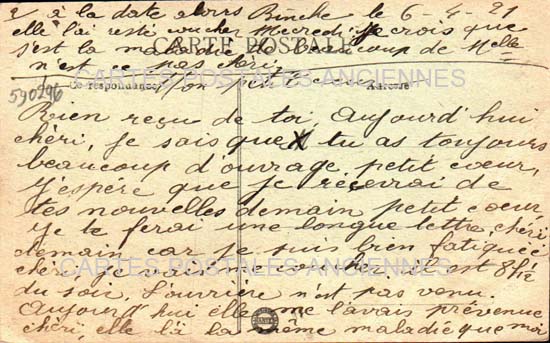 2 à la date alors Binche le 6-4-21
elle l'ai resté coucher Mercredi je crois que
CARTE POSTALE
s'est la maladie de beaucoup de Melle
n'est ce pas chéri,
CARTES POSTALES ANCIENNES
590296
Correspondance Mon petit coeur Adresse
Rien reçu de toi, aujourd'hui
chéri, je sais que tu as toujours
beaucoup d'ouvrage petit coeur,
j'espère que je recevrai de
tes nouvelles demain petit coeur,
je te ferai une longue lettre chéri
demain car je suis bien fatiguée
CARTES POSTALES ANCIENNES
chéri je vais me coucher il est 8h½
du soir, l'ouvrière n'est pas venu
aujourd'hui elle me l'avais prévenue
chéri, elle l'a la même maladie que moi